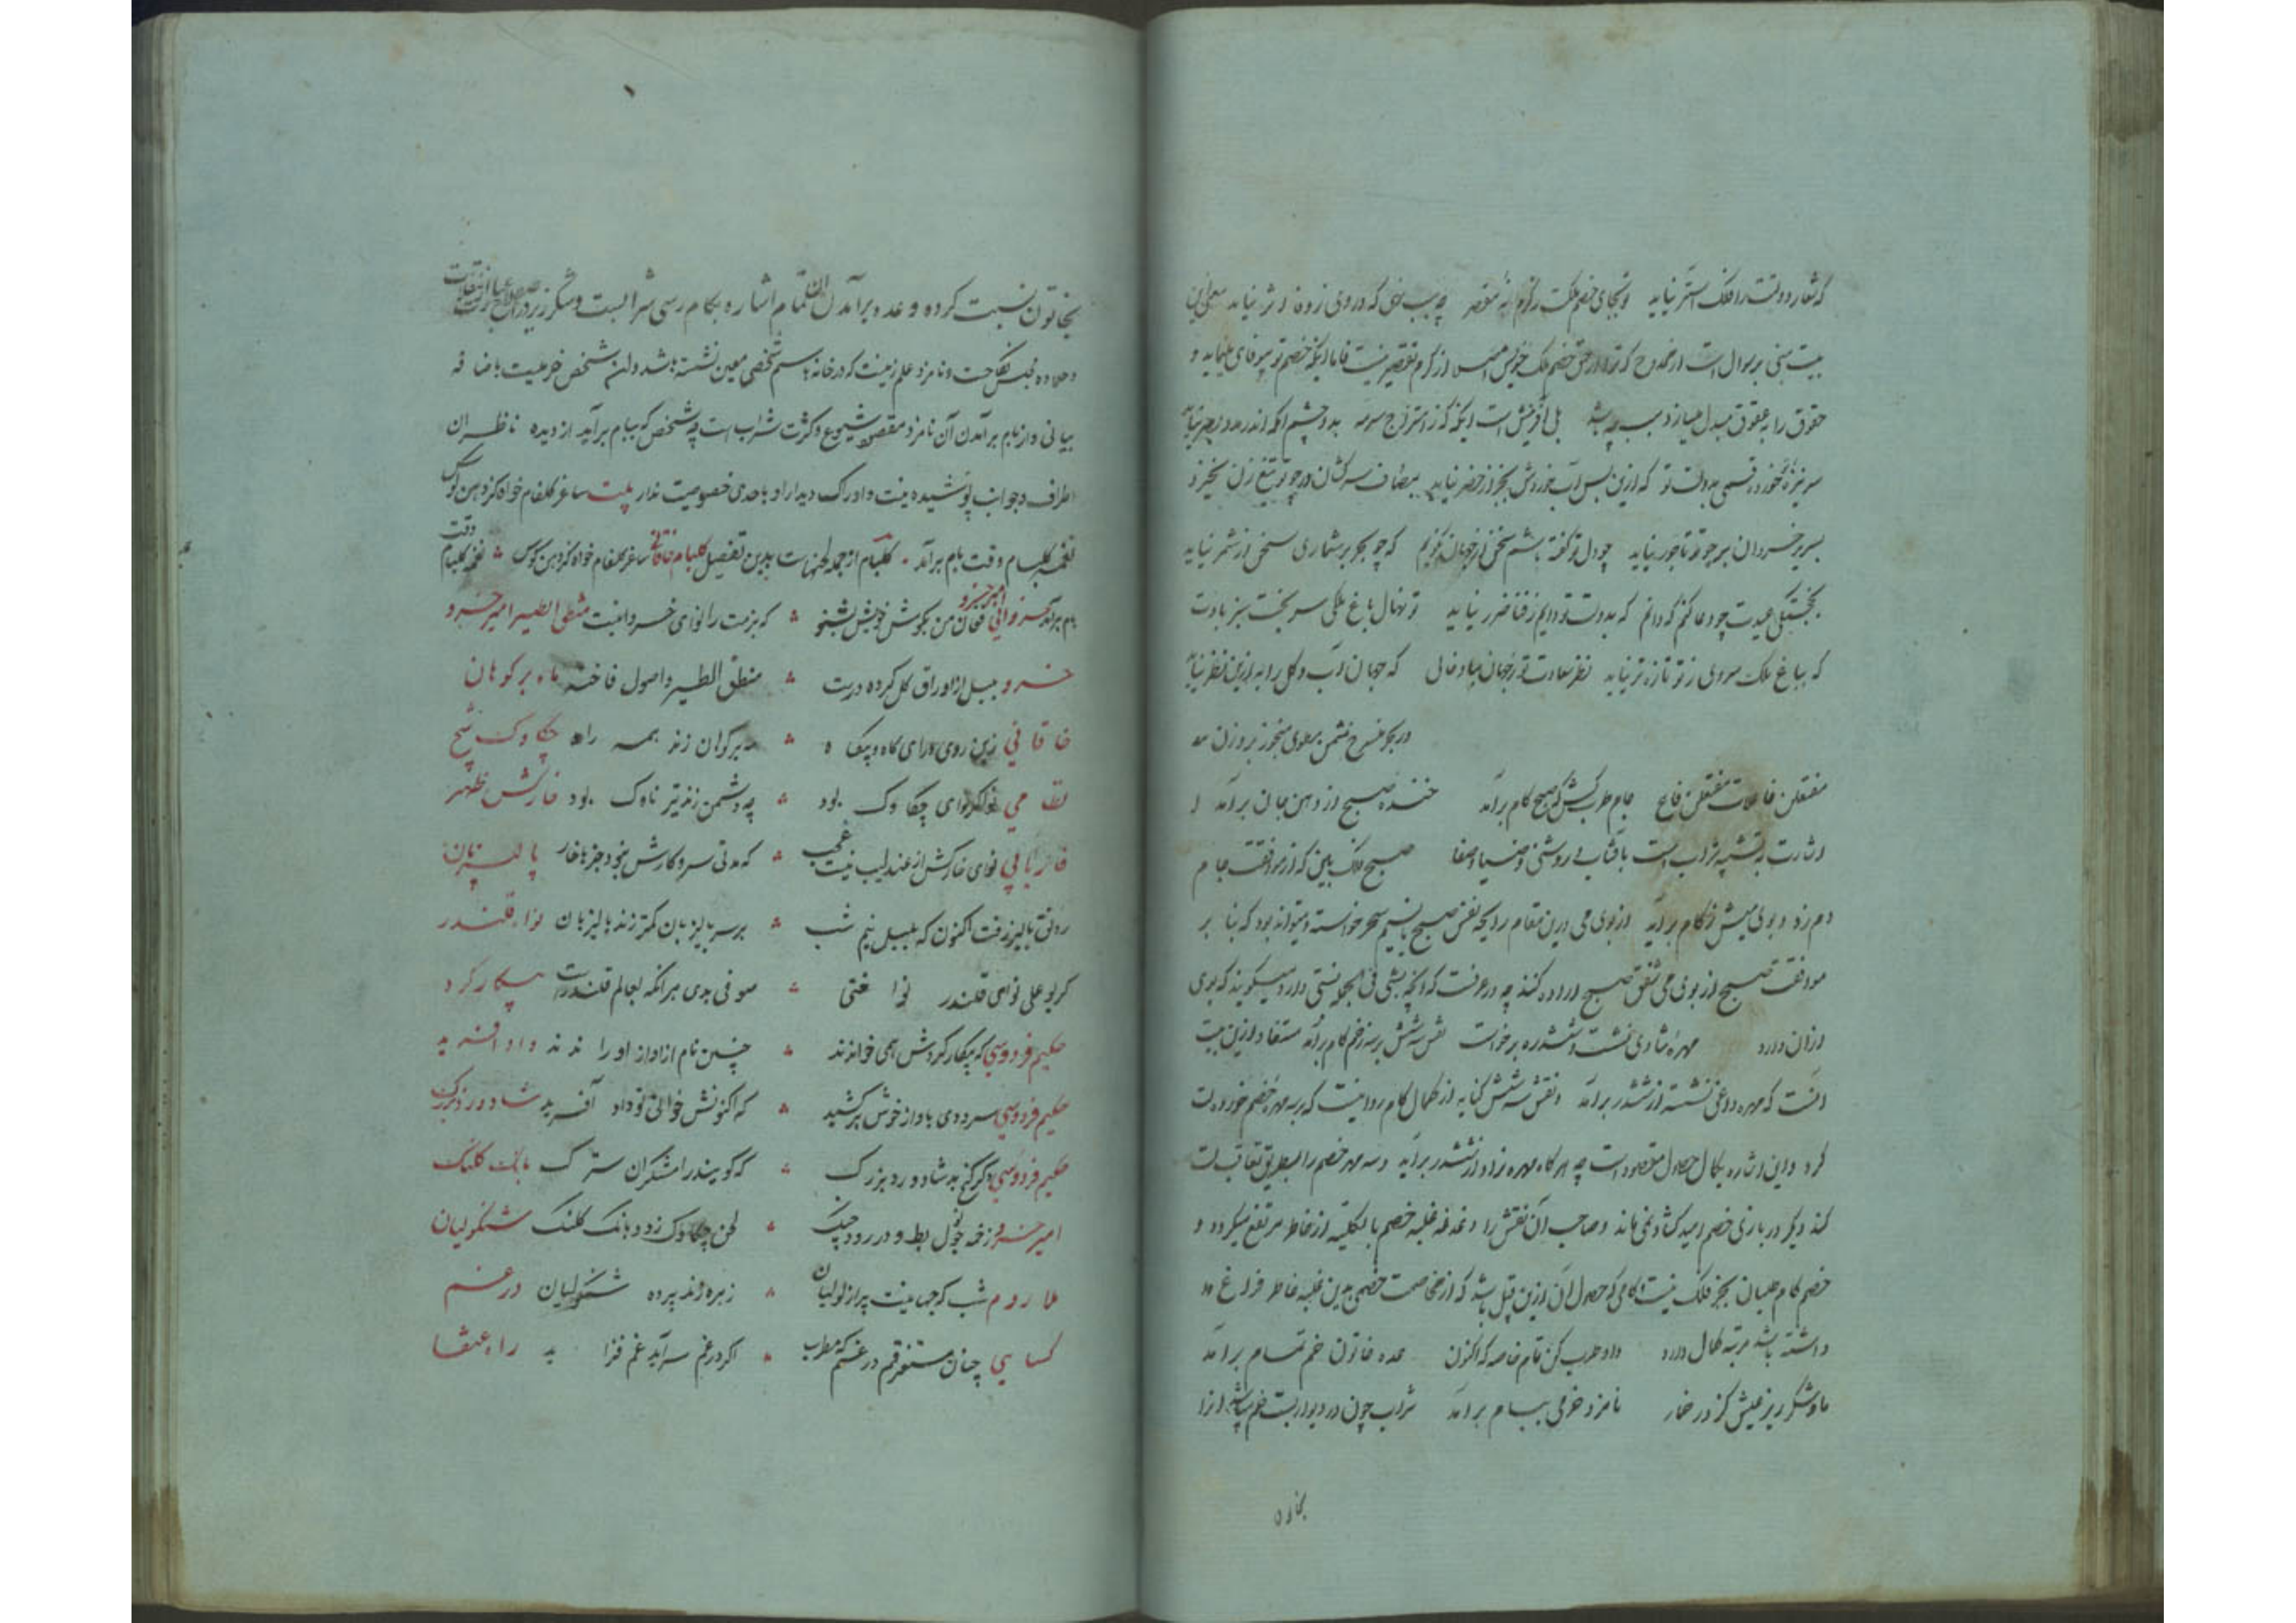 که شعار دولتت را فلک استر نیاید تو بجای خصم ملکت ز کرم نه مقصر چه سبب حق که درونی ز وفا اثر نیاید معنی این
بیت مبنی بر سوال است از ممدوح که ترا در حق خصم ملک خویش از کرم تقصیر نیست فاما اینکه خصم تو بیوفای مینماید و
حقوق را بعقوق مبدل میسازد سبب چه باشد بلی آفرینش است اینکه ز امتزاج سرمه بدو چشم اکمه اندر مدد بصر نیاید
سر نیزه تو خورد قسمی بدولت تو که ازین پس آب خوردش بجز از خضر نیاید بمصاف سرکشان در چو تو تیغ زن نخیزد
بسریر خسروان بر چو تو تاجور نیاید چو دل تو گفته باشم سخن از جهان نگویم که چو بحر بر شماری سخن از شمر نیاید
بخجستگی عیدت چو دعا کنم که دانم که بدولت تو دایم ز فنا ضرر نیاید تو نهال باغ ملکی سر بخت سبز بادت
که بباغ ملک سروی ز تو تازه تر نیاید نظر سعادت تو ز جهان مباد خالی که جهان آب و گل را به ازین نظر نیاید
در بحر منسرح مثمن مطوی منحور بر وزن
مفتعلن فاعلات مفتعلن فاع جام طرب کش که صبح کام برآمد خنده صبح از دهن جان برآمد
اشارت به تشبیه شراب است بآفتاب در روشنی و ضیا و صفا صبح فلک بین که از موافقت جام
دم زد و بوی میش ز کام برآید از بوی می درین مقام رایحه نفس صبح یا نسیم سحر خواسته و میتواند بود که بنا بر
موافقت صبح از بوی می شفق صبح اراده کنند چه در عرفست که آنچه بشی فی الجمله نسبتی دارد میگویند که بوی
ازان دارد مهره شادی نشست و ششدره برخاست نقش سه شش بر سه زخم کام برآمد مستفاد ازین بیت
آنست که مهره داغی نشسته از ششدر برآمد و نقش سه شش کنایه از کمال کام روانیست که بر سه مهره خصم خورده است
کرد و این اشاره بکمال حصول مقصود است چه هر گاه مهره نراد از ششدر برآید و سه مهره خصم را بطریق تعاقب
کند دیگر در بازی خصم امید کشاد نمی ماند و صاحب آن نقش را دغدغه غلبه خصم بالکلیه از خاطر مرتفع میگردد و
خصم کام طلبان بجز فلک نیست کامی که حصول آن ازین قبیل باشد که از مخاصمت خصمی بدین غلبه خاطر فراغ
داشته باشد مرتبه کمال دارد داد طرب کن تمام خاصه که اکنون عده خاتون خم تمام برآمد
ماه شکر ریز عیش کز در خمار نامزد خرمی ببام برآمد شراب چون در دیوار بست خم میباشد او را
بخاتون
بخاتون نسبت کرده و عده برآمدن آن تمام اشاره بکام رسی شرابست و شکر ریز در اصطلاح عبارت
و نامزد علم زنیست که در خانه باسم شخصی معین نشسته باشد و این شخص خرمیت باضافه
بیانی و از بام برآمدن آن نامزد مقصود شیوع و کثرت شراب است چه شخص که ببام برآید از دیده ناظران
اطراف و جوانب پوشیده نیست و ادراک دیدار او باحدی خصوصیت ندارد بیت ساغر گلفام خواه کز دهن کوس
نغمه گلبام وقت بام برآمد گلبام از جمله لحنهاست بدین تفصیل گلبام خاقانی ساغر گلفام خواه کز دهن کوس نغمه گلبام وقت
بام برآمد خسروانی امیر خسرو فغان من بگوش خویش بشنو که بزمت را نوای خسروانیست منطق الطیر امیر خسرو
خسرو بلبل از اوراق گل کرده درست منطق الطیر و اصول فاخته ماه بر کوهان
خاقانی زین روی ورای گاه و بیگاه مه بر کوهان زند همه راه چکاوک شیخ
نظامی نوای چکاوک بود چه دشمن زند تیر ناوک بود خارکش ظهیر
فاریابی نوای خارکش از عندلیب نیست عجب که مدتی سر و کارش نبود جز با خار پالیزبان
رونق پالیز رفت اکنون که بلبل نیم شب بر سر پالیزبان کمتر زند پالیزبان نوا قلندر
کز بو علی نوای قلندر نوا ختی صوفی بدی هر آنکه بعالم قلندرست بیکار کرد
حکیم فردوسی که بیکار کردش همی خواندند چنین نام از آواز او راندند داد آفرید
حکیم فردوسی سرودی باواز خوش برکشید که اکنونش خوانی تو داد آفرید شادورد بزرک
حکیم فردوسی دگر گنج بد شادورد بزرگ که گویند رامشگران سترگ بانک کلنک
امیر خسرو زخمه چون بط و در رود چنگ لحن چکاوک زد و بانگ کلنگ شنگولیان
ملا روم شب که جهانیست پر از لولیان زهره زند پرده شنگولیان در غم
کسایی چنان مستغرقم در غم که مطرب اگر در غم سراید غم فزاید راه عنقا